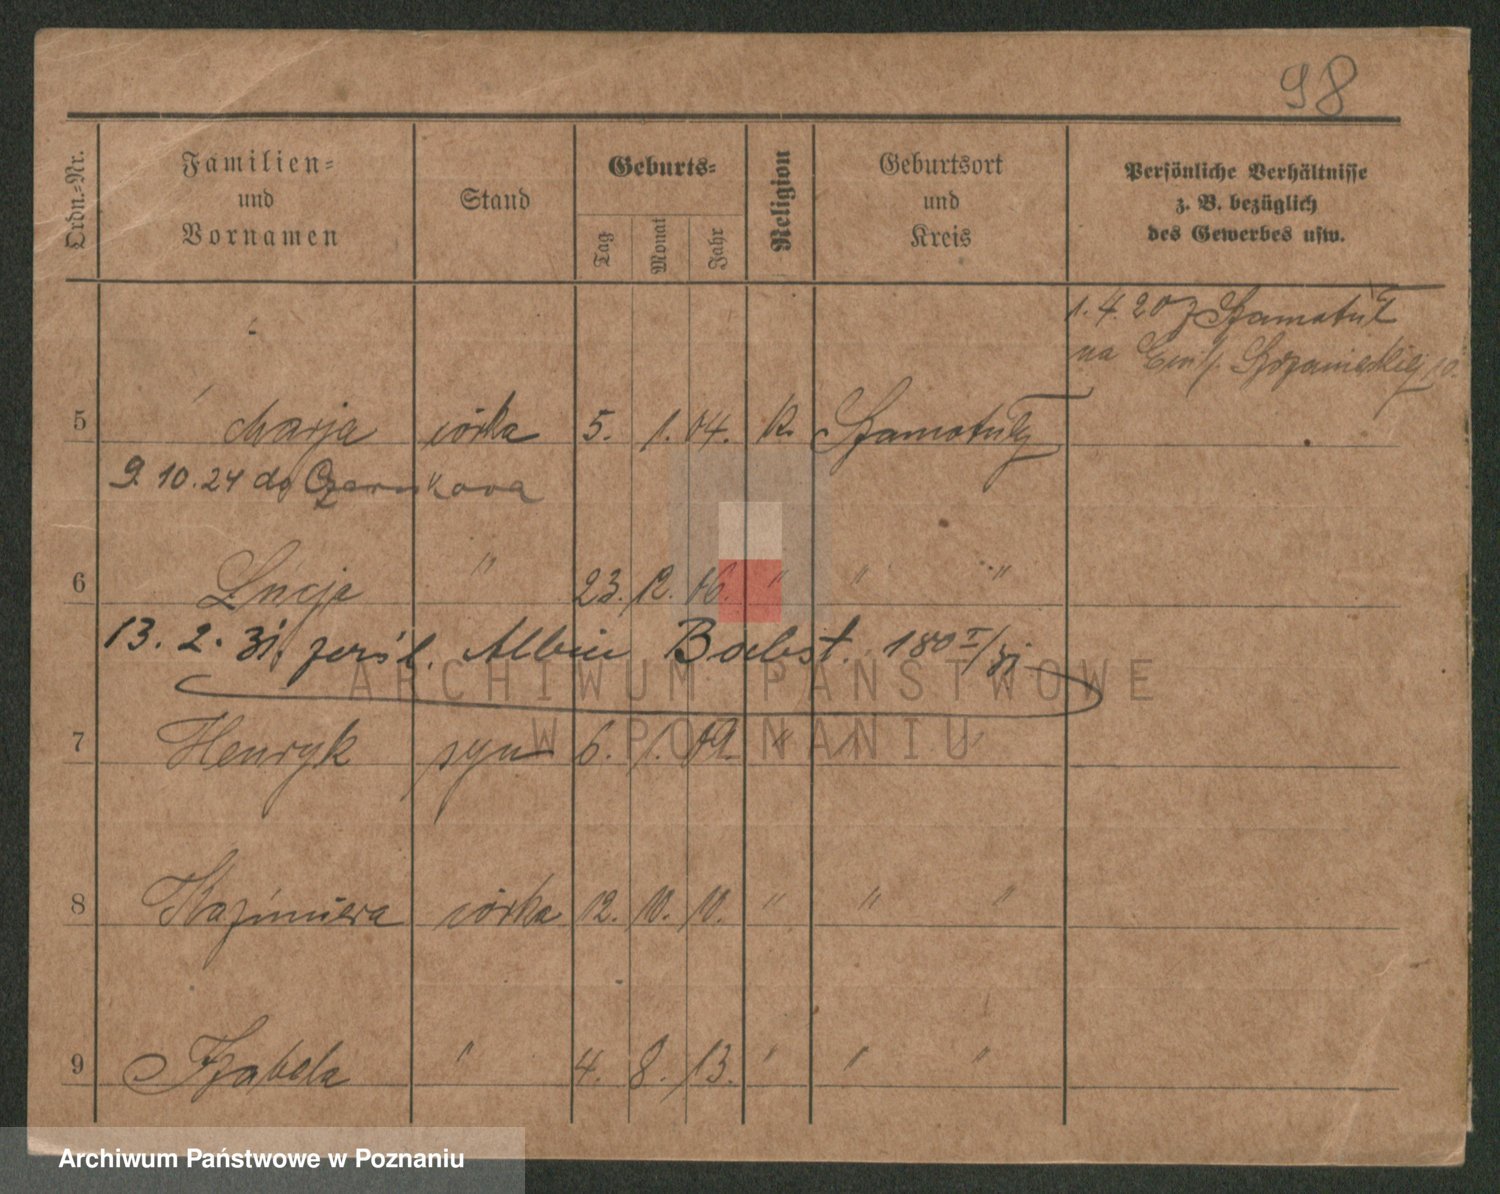 98
Ordn.-Nr.
Familien-
und
Vornamen
Stand
Geburts-
Tag
Monat
Jahr
Religion
Geburtsort
und
Kreis
Persönliche Verhältnisse
z. B. bezüglich
des Gewerbes usw.
1. 4. 20 z Szamotuł
na
5 Marja córka 5. 1. 04. K. Szamotuły
9. 10. 24 do Czarnkowa
6 Lucja " 23. 12. 06. " " "
13. 2. 31. Albin 180 I/31
7 Henryk syn 6. 1. 09. " " "
8 Kazimiera córka 12. 10. 10. " " "
9 Izabela " 4. 8. 13. " " "
ARCHIWUM PAŃSTWOWE
W POZNANIU
Archiwum Państwowe w Poznaniu